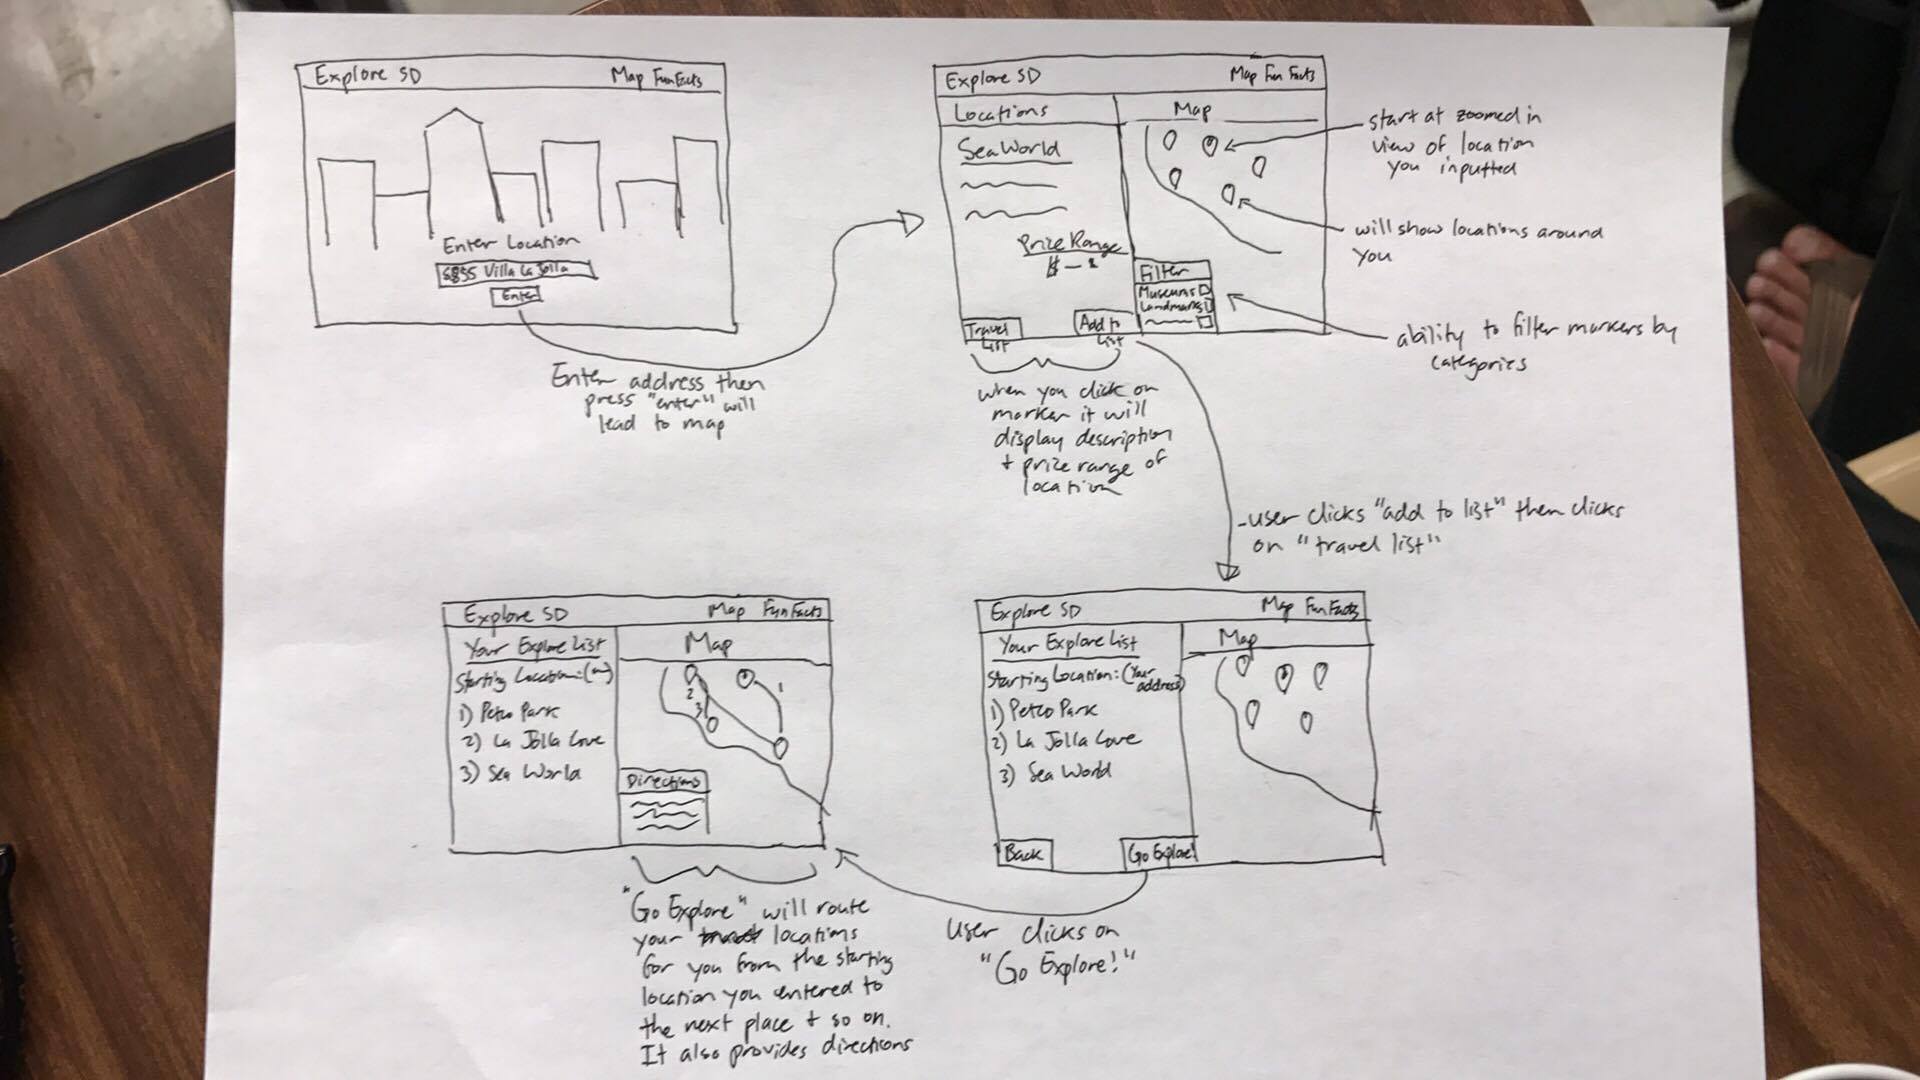 Explore SD Map Fun Facts
Enter Location
Villa La Jolla
Enter
Enter address then
press "enter" will
lead to map
Explore SD Map Fun Facts
Locations
Map
SeaWorld
Prize Range
Filter
Museums
Landmarks
Travel
List
Add to
List
start at zoomed in
view of location
you inputted
will show locations around
you
ability to filter markers by
categories
when you click on
marker it will
display description
+ prize range of
location
- user clicks "add to list" then clicks
on "travel list"
Explore SD Map Fun Facts
Your Explore List
Map
Starting Location: (Your
address)
1) Petco Park
2) La Jolla Cove
3) Sea World
Back
Go Explore!
User clicks on
"Go Explore!"
Explore SD Map Fun Facts
Your Explore List
Map
Starting Location:
1) Petco Park
2) La Jolla Cove
3) Sea World
1
2
3
Directions
"Go Explore" will route
your locations
for you from the starting
location you entered to
the next place + so on.
It also provides directions